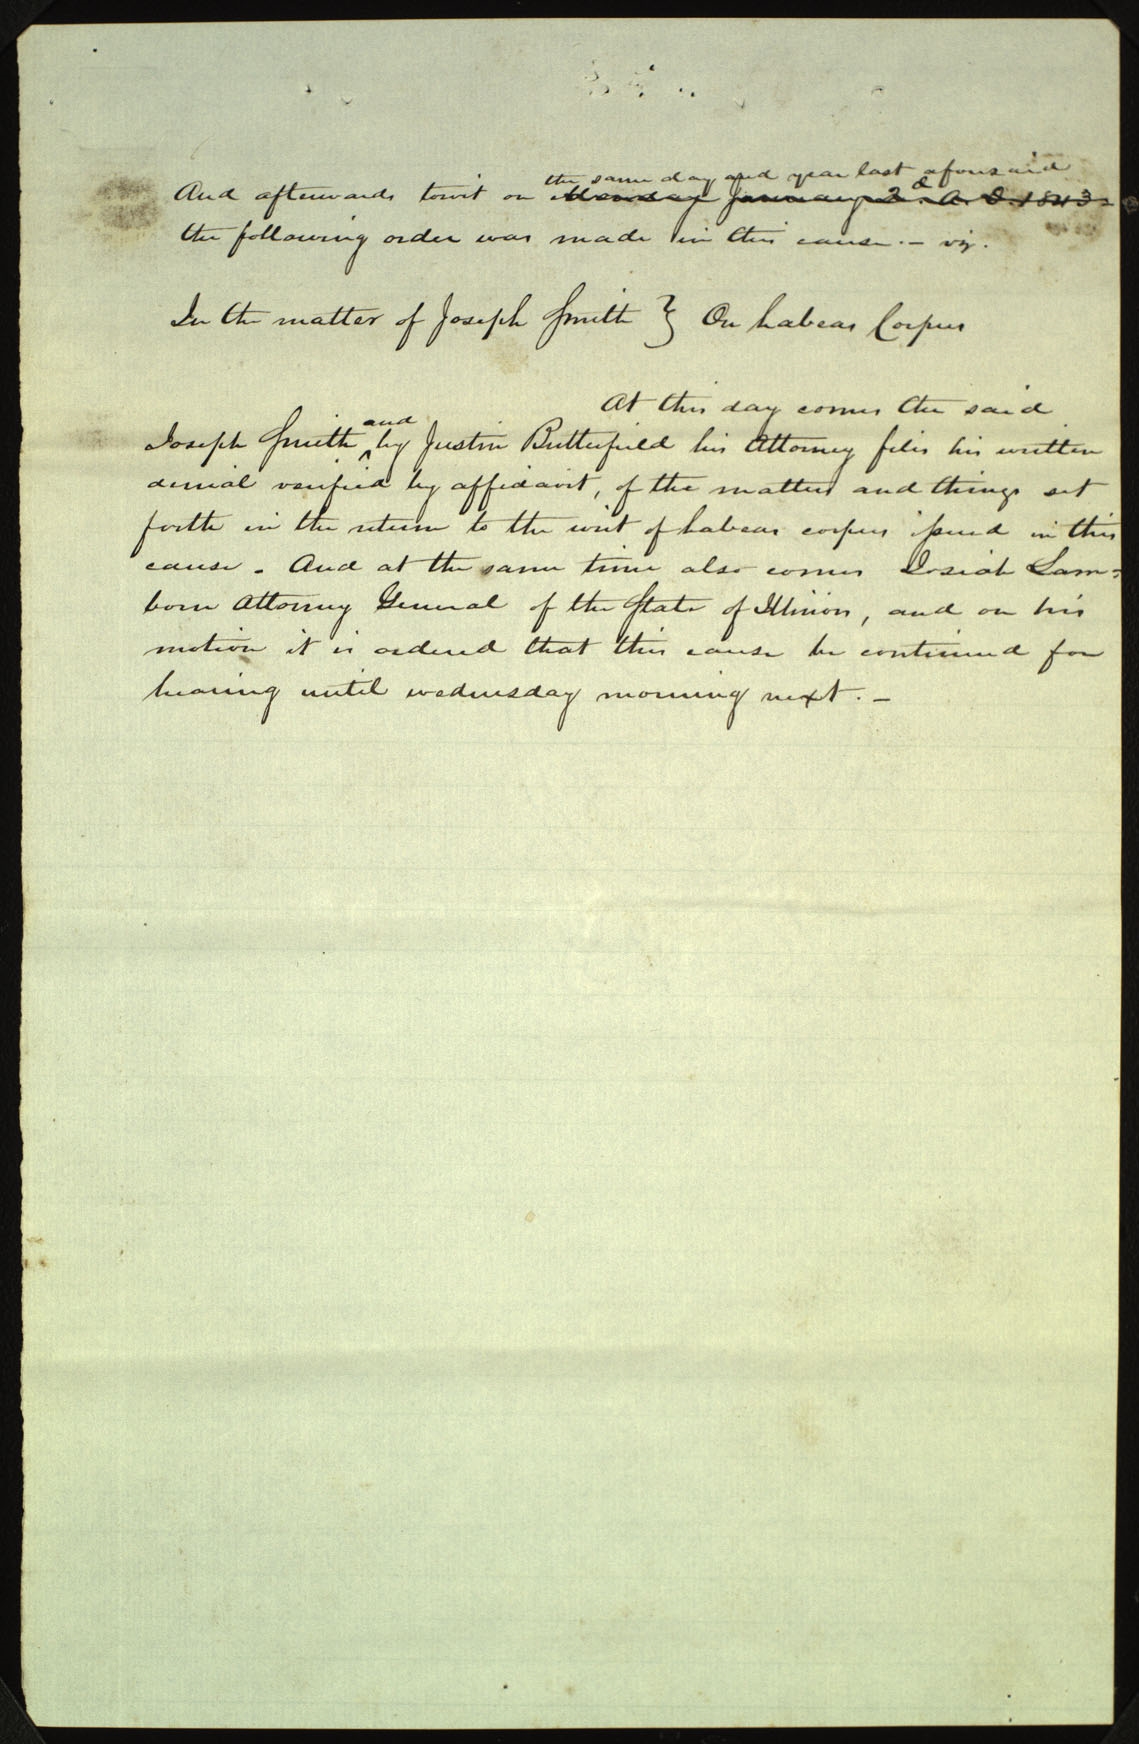 the same day and year last aforesaid
And afterwards towit on Monday January 2d. A. D. 1843
the following order was made in this cause. — viz.
In the matter of Joseph Smith } On habeas Corpus
At this day comes the said
and
Joseph Smith ‸ by Justin Butterfield his Attorney files his written
denial verified by affidavit, of the matters and things set
forth in the return to the writ of habeas corpus issued in this
cause. And at the same time also comes Josiah Lam=
born Attorney General of the State of Illinois, and on his
motion it is ordered that this cause be continued for
hearing until wednesday morning next. —